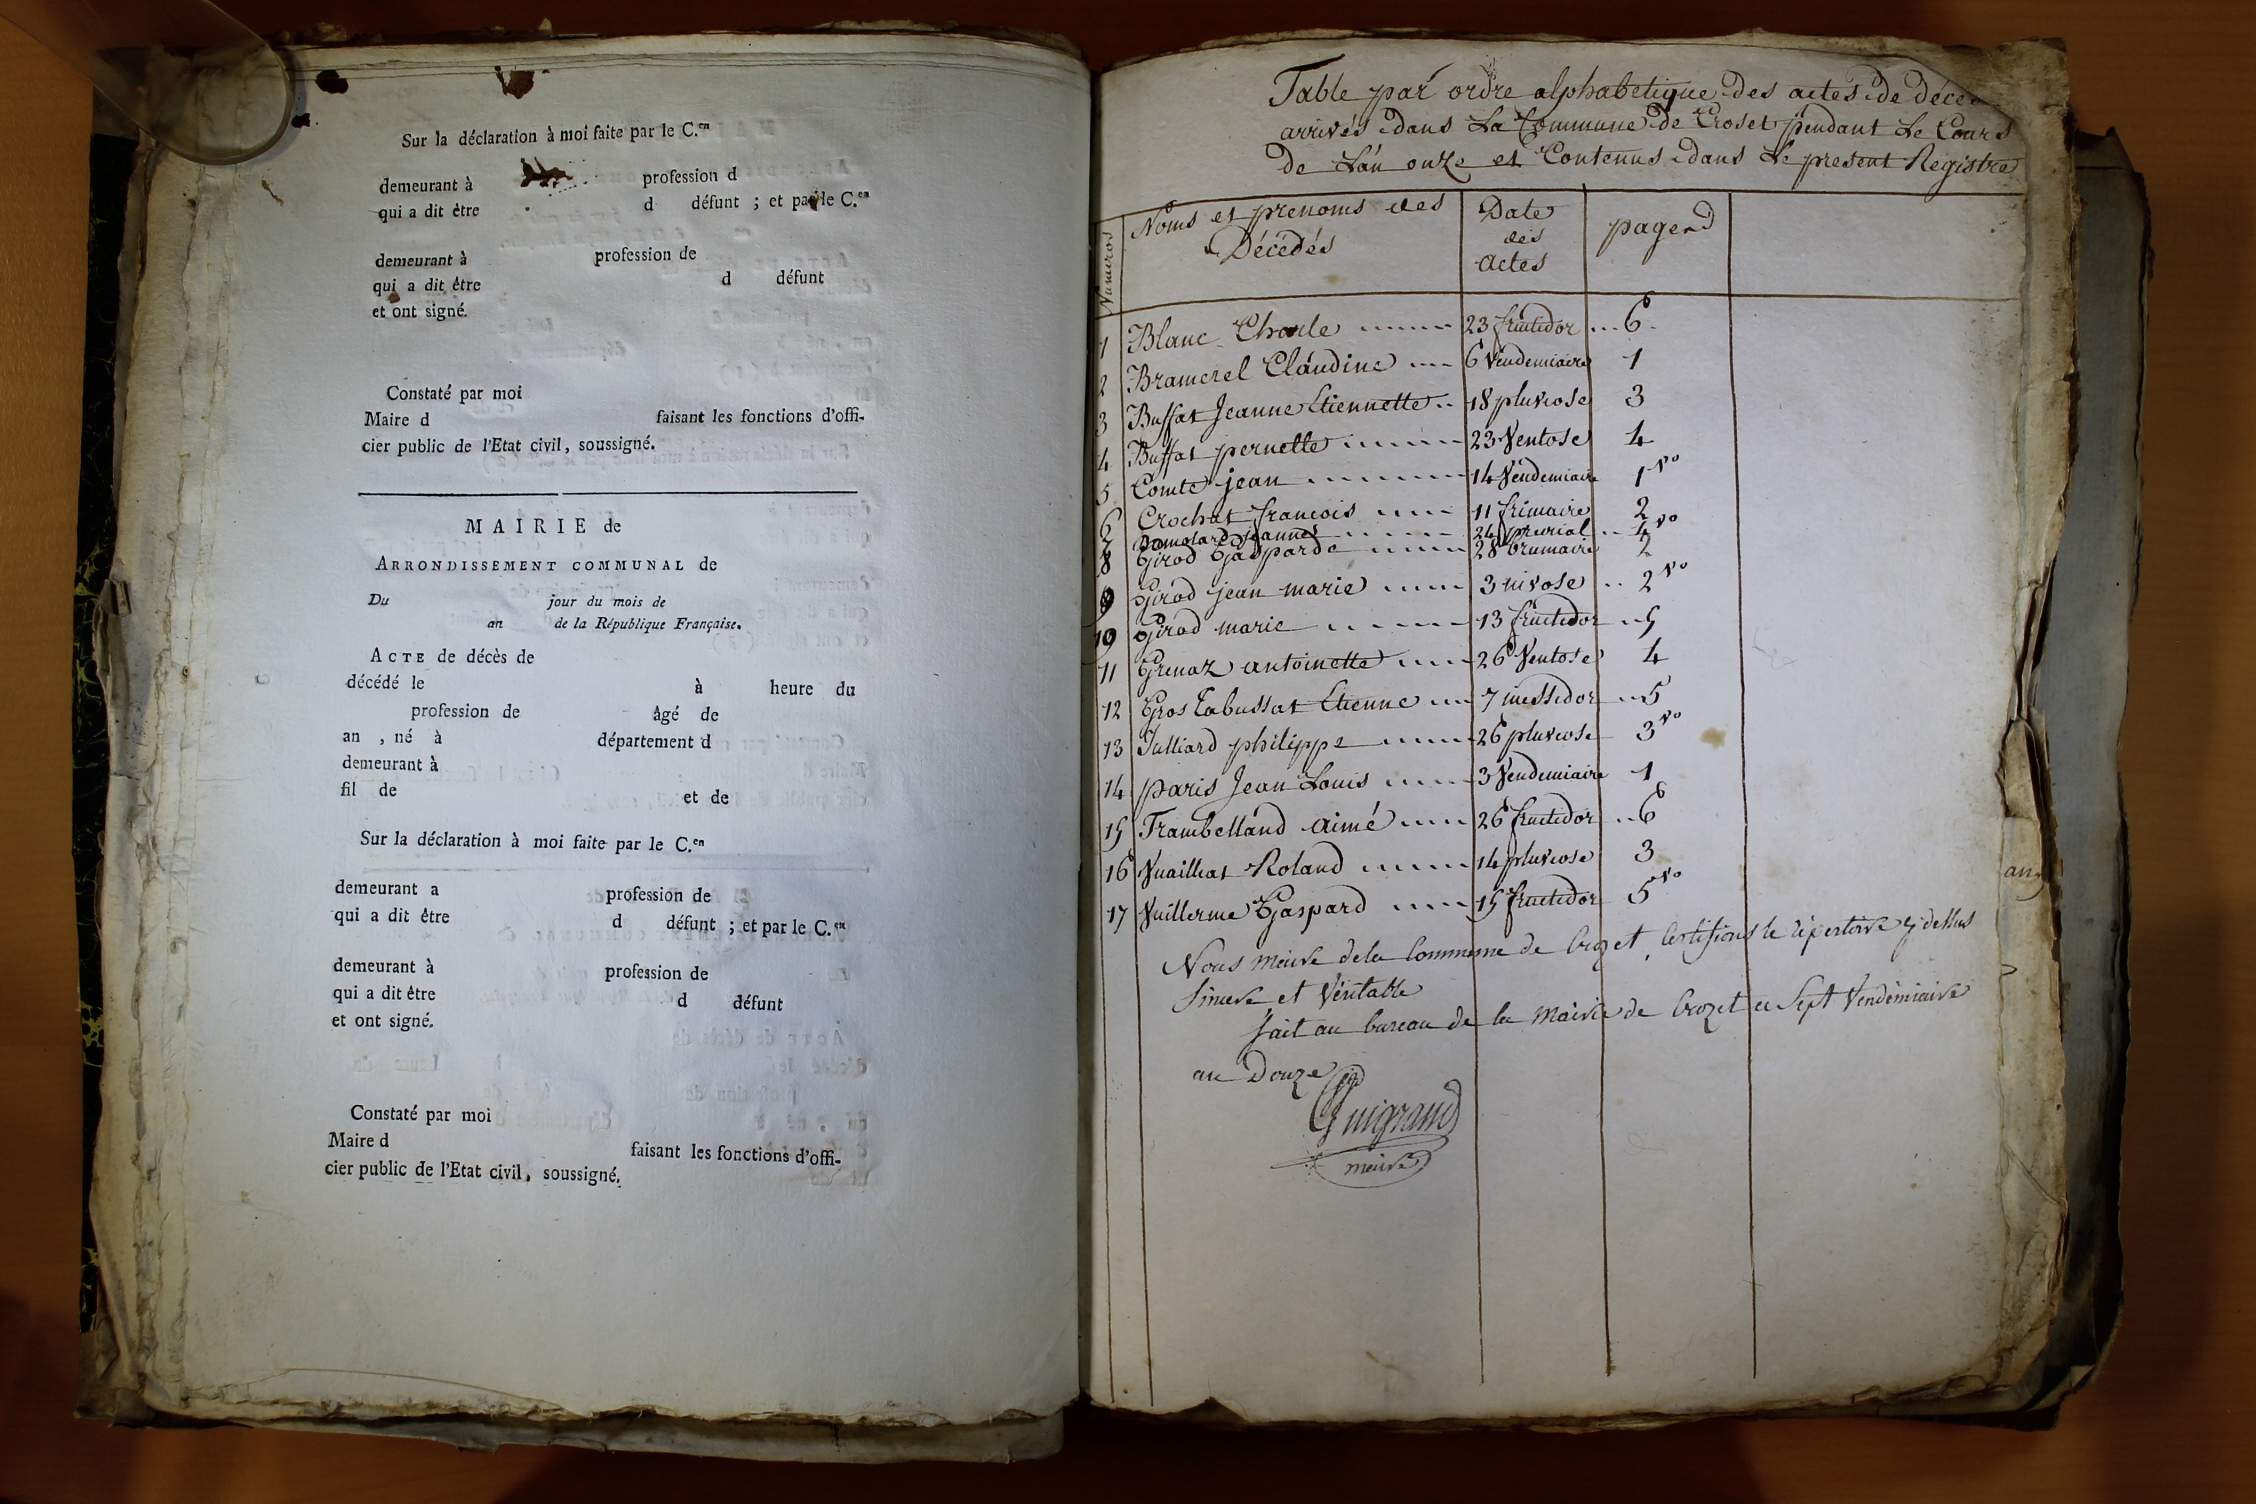 Sur la déclaration à moi faite par le C.en
demeurant à profession d
qui a dit être d défunt ; et par le C.en
demeurant à profession de
qui a dit être d défunt
et ont signé.
Constaté par moi
Maire d faisant les fonctions d'offi-
cier public de l'Etat civil, soussigné.
MAIRIE de
ARRONDISSEMENT COMMUNAL de
Du jour du mois de
an de la République Française.
ACTE de décès de
décédé le à heure du
profession de âgé de
an , né à département d
demeurant à
fil de et de
Sur la déclaration à moi faite par le C.en
demeurant a profession de
qui a dit être d défunt ; et par le C.en
demeurant à profession de
qui a dit être d défunt
et ont signé.
Constaté par moi
Maire d faisant les fonctions d'offi-
cier public de l'Etat civil, soussigné.
Table par ordre alphabetique des actes de décès
arrivés dans La Commune de Croset pendant Le Cours
de L'an onze et Contenus dans Le present Registre
Numeros Noms et prenoms des Décédés Date des actes pages
1 Blanc Charle 23 fructidor 6
2 Bramerel Claudine 6 Vendemiaire 1
3 Buffat Jeanne Etiennette 18 pluviose 3
4 Buffat pernette 23 Ventose 4
5 Comte jean 14 Vendemiaire 1 vo
6 Crochat francois 11 frimaire 2
7 jeanne 24 prerial 4 vo
8 Girod Gasparde 28 brumaire 2
9 Girod jean marie 3 nivose 2 vo
10 Girod marie 13 fructidor 5
11 Grenaz antoinette 26 Ventose 4
12 Gros Tabussat Etienne 7 messidor 5
13 Julliard philippe 26 pluviose 3 vo
14 paris Jean Louis 3 Vendemiaire 1
15 Trambelland Aimé 26 fructidor 6
16 Vuaillat Roland 14 pluviose 3
17 Vuillerme Gaspard 15 fructidor 5 vo
Nous meire de la Commune de Crozet, Certifions le répertoire cy dessus
Sincere et Véritable
fait au bureau de la Mairie de Crozet ce Sept Vendémiaire
an Douze
Guigrand
meire